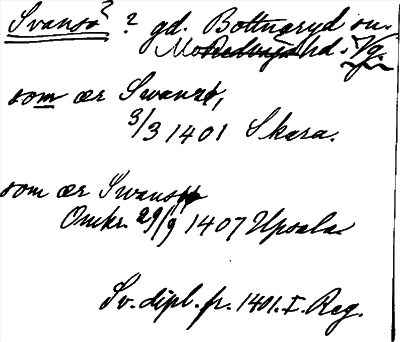 Svansö? ? gd. Bottnaryd sn.
Mo hd. Vg.
som ær Swanzø,
3/3 1401 Skara.
som ær Swansø
Omkr. 29/9 1407 Upsala
Sv. dipl. fr. 1401. I. Reg.